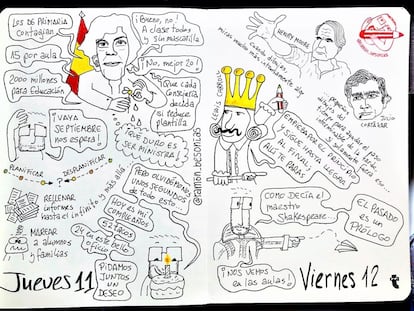 LOS DE PRIMARIA
CONTAGIAN
15 POR AULA
2000 millones
PARA EDUCACIÓN
¡Bueno, no!
A clase todos
y sin mascarilla
¡No, mejor 20!
¡Que cada
Consejería
decida
si reduce
plantilla
¡QUÉ DURO ES
SER MINISTRA!
¡VAYA
SEPTIEMBRE
NOS ESPERA!
PLANIFICAR
DESPLANIFICAR
RELLENAR
informes
hasta el infinito y más allá
MAREAR
a alumnos
y familias
Pero olvidémonos
unos segundos
de todo esto
Hoy es mi
cumpleaños
52 tacos
24 en este bello
oficio
PIDAMOS
JUNTOS UN
DESEO
Jueves 11
HENRY MOORE
Cuando dibujan
miran mucho más intensamente algo
JULIO
CORTÁZAR
LEWIS CARROLL
EMPIEZA POR EL PRINCIPIO
Y SIGUE HASTA
AL FINAL. ALLÍ
TE PARAS
COMO DECÍA EL
maestro
Shakespeare...
EL PASADO
ES UN
PRÓLOGO
¡NOS VEMOS
en las aulas!
Viernes 12